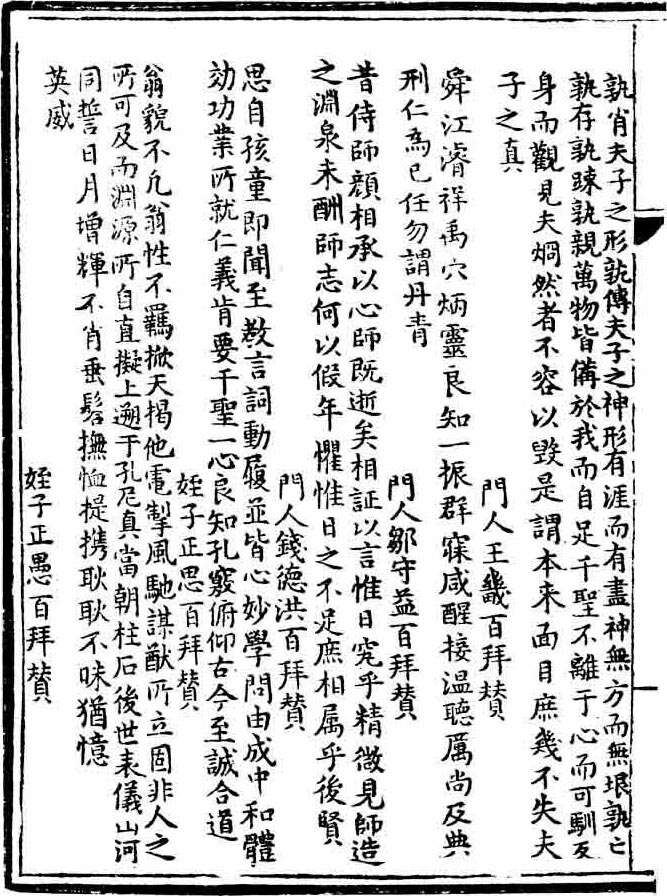 孰肖夫子之形孰傳夫子之神形有涯而有盡神無方而無垠孰亡
孰存孰踈孰親萬物皆備於我而自足千聖不離于心而可馴反
身而觀見夫烱然者不容以毀是謂本來面目庶幾不失夫
子之真
門人王畿百拜贊
舜江濬祥禹穴炳靈良知一振群寐咸醒接温聽厲尚及典
刑仁為己任勿謂丹青
門人鄒守益百拜贊
昔侍師顔相承以心師既逝矣相証以言惟日究乎精微見師造
之淵泉未酬師志何以假年懼惟日之不足庶相属乎後賢
門人錢德洪百拜贊
思自孩童即聞至教言詞動履並皆心妙學問由成中和體
効功業所就仁義肯要千聖一心良知孔竅俯仰古今至誠合道
姪子正思百拜贊
翁貌不凢翁性不羈掀天揭他電掣風馳謀猷所立固非人之
所可及而淵源所自直擬上遡于孔尼真當朝柱石後世表儀山河
同誓日月增輝不肖垂髫撫恤提携耿耿不昧猶憶
英威
姪子正愚百拜贊